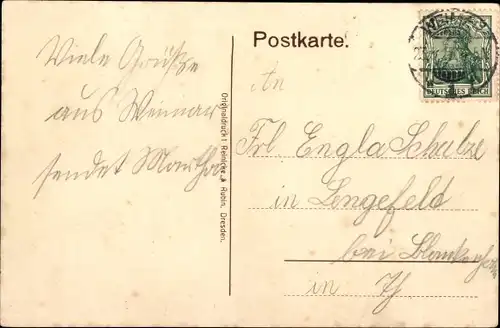 Viele Grüße
aus Weimar
sendet Martha
Originaldruck: Reinicke & Rubin, Dresden.
Postkarte.
WEIMAR
DEUTSCHES REICH
An
Frl. Engla Schulze
in Lengefeld
bei Blankenhain
in Th.